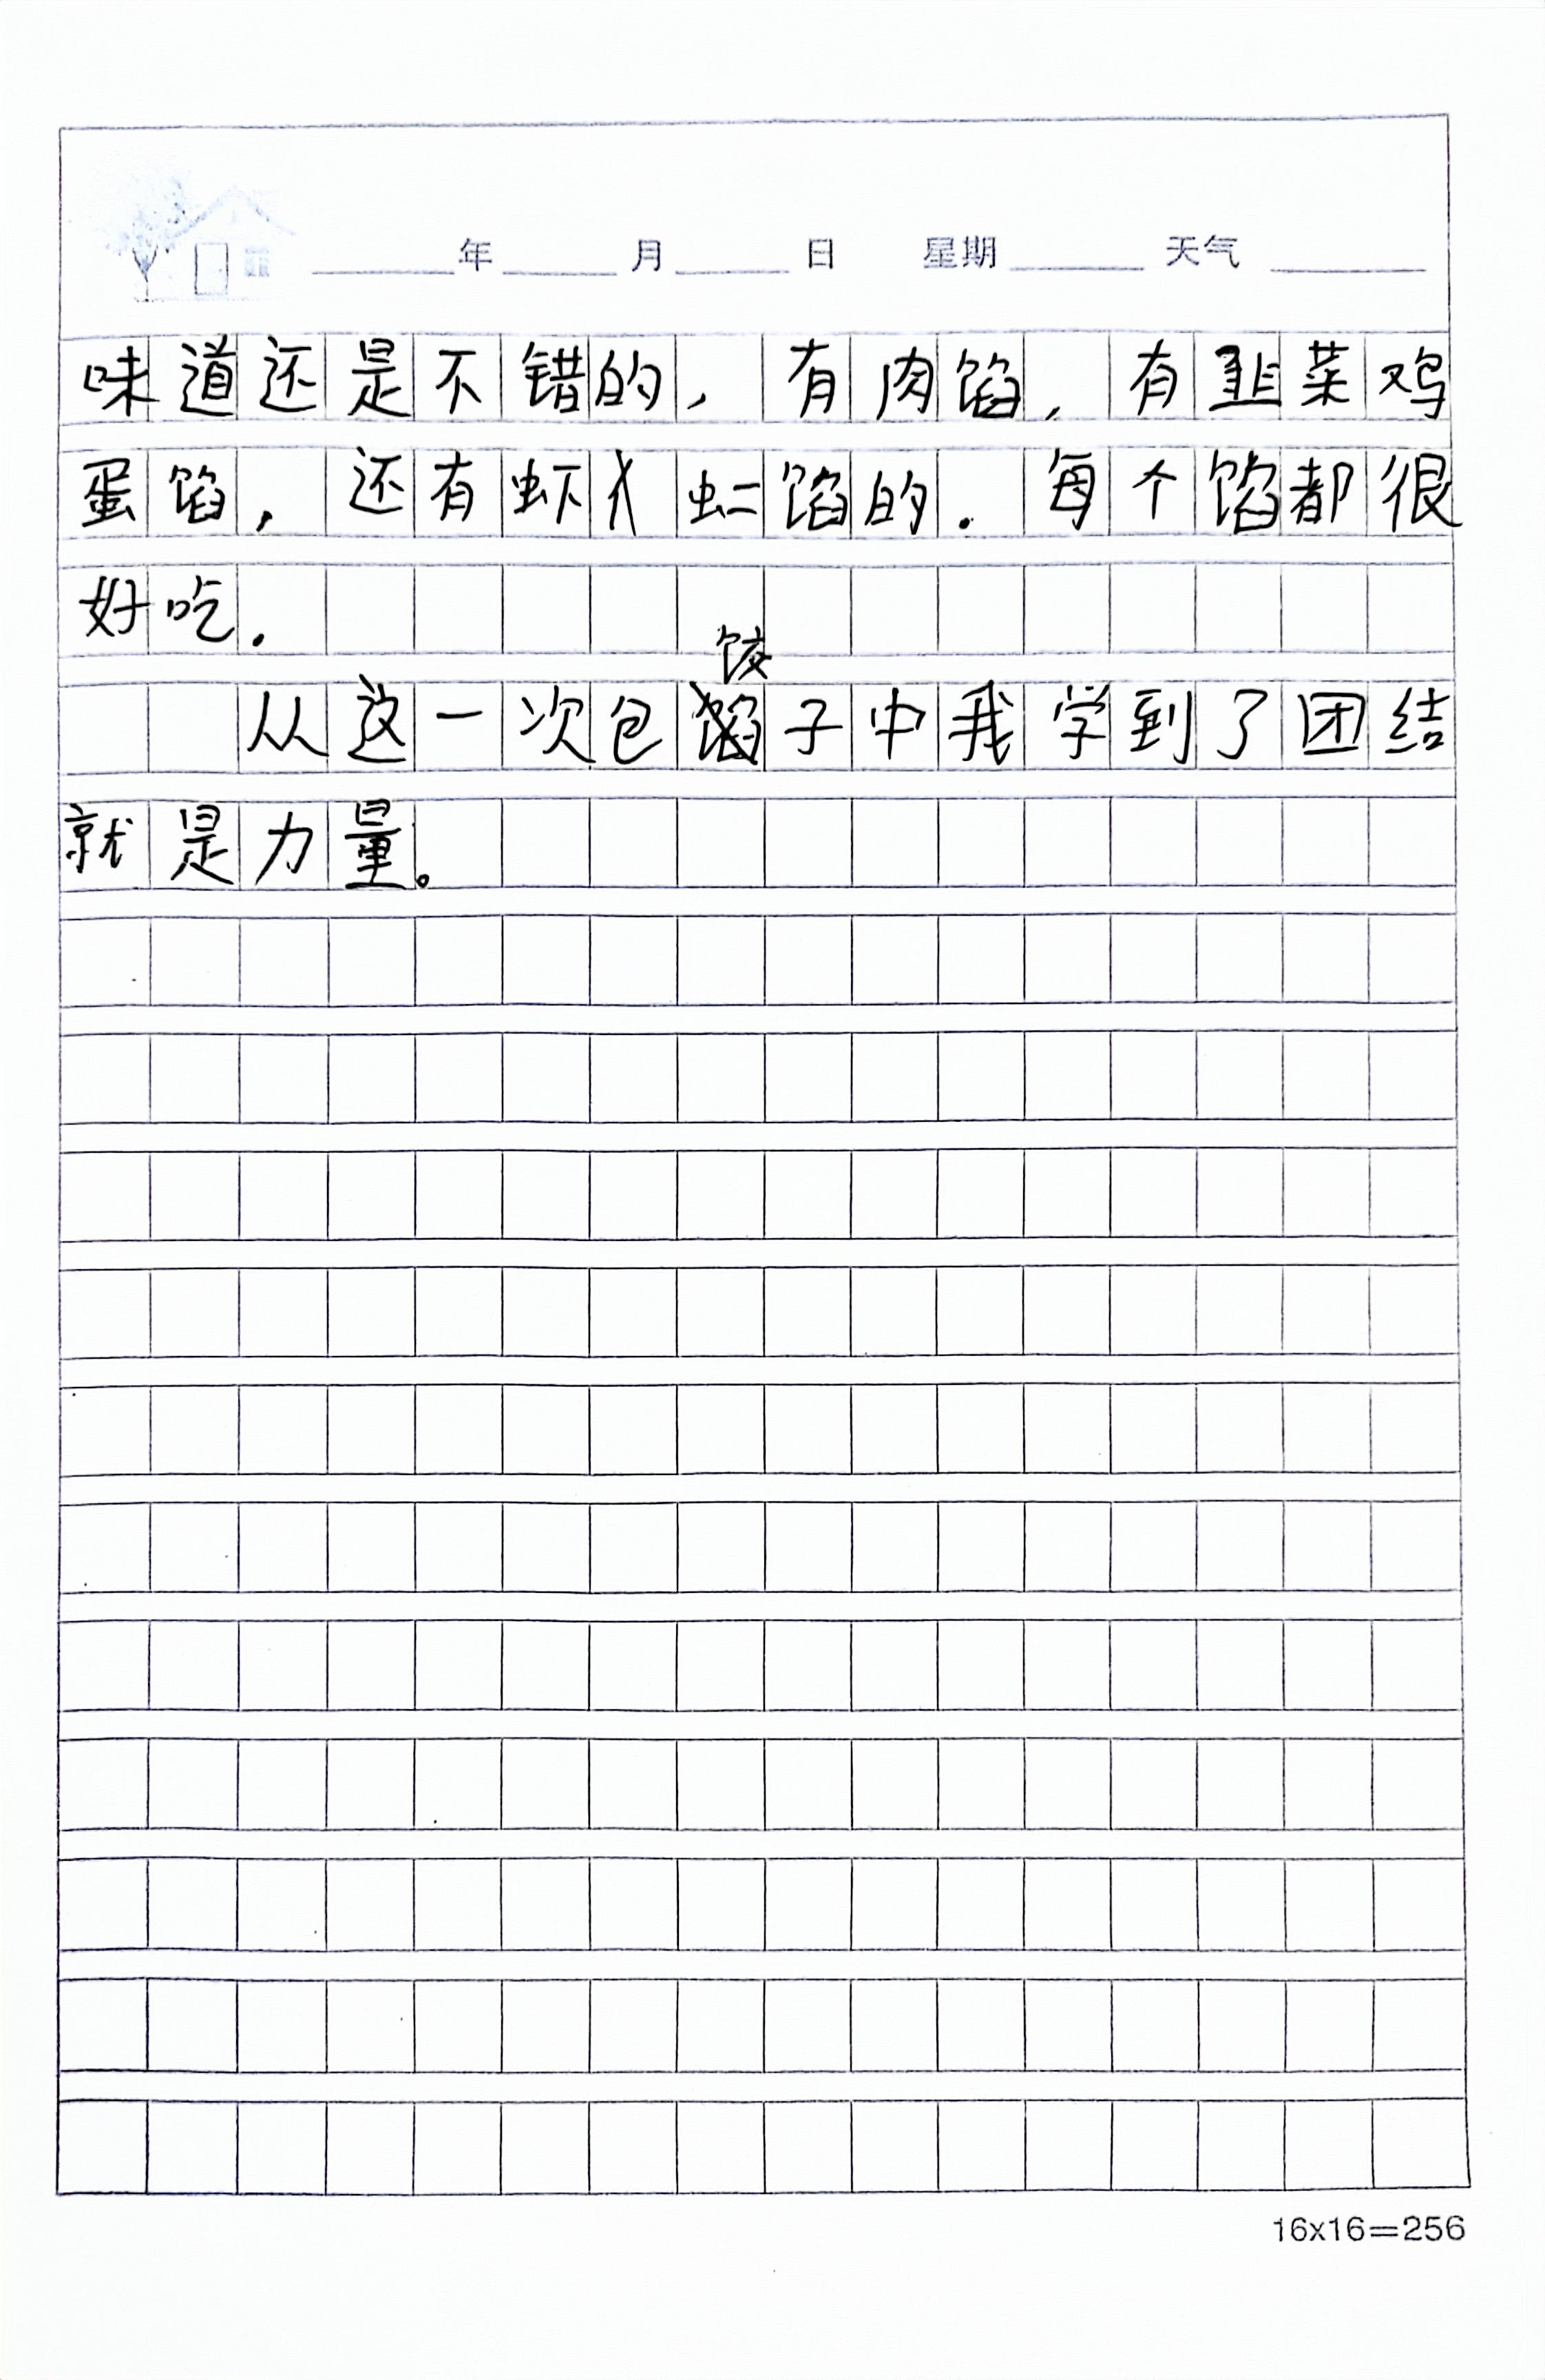 年 月 日 星期 天气
味道还是不错的，有肉馅，有韭菜鸡
蛋馅，还有虾 馅的．每个馅都很
好吃．
从这一次包饺子中我学到了团结
就是力量。
16x16=256